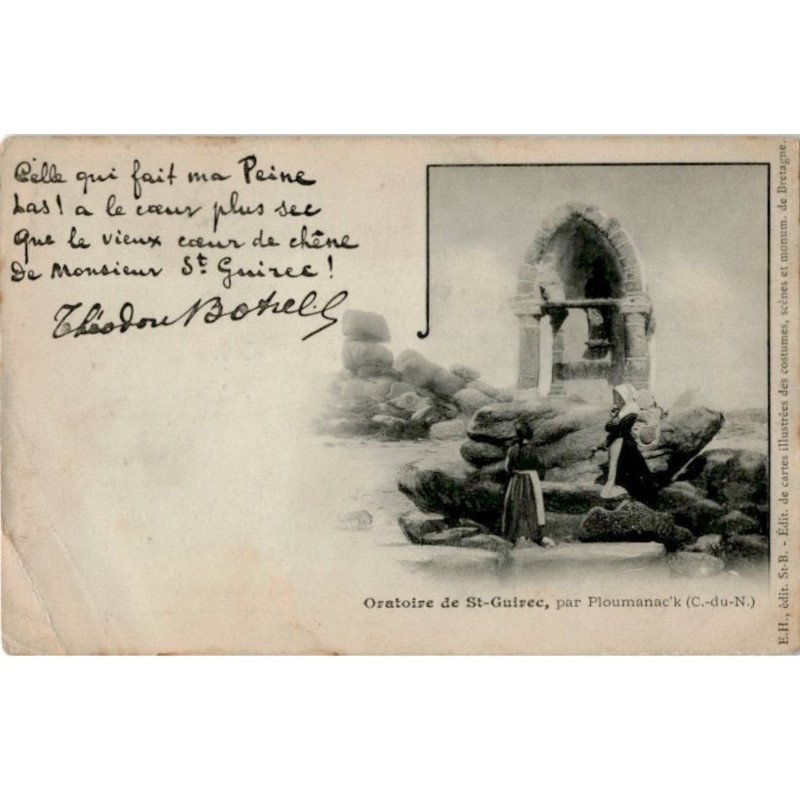 Celle qui fait ma Peine
Las! a le cœur plus sec
Que le vieux cœur de chêne
De Monsieur St Guirec!
Théodore Botrel
Oratoire de St-Guirec, par Ploumanac'k (C.-du-N.)
E.H., édit. St-B. - Édit. de cartes illustrées des costumes, scènes et monum. de Bretagne.